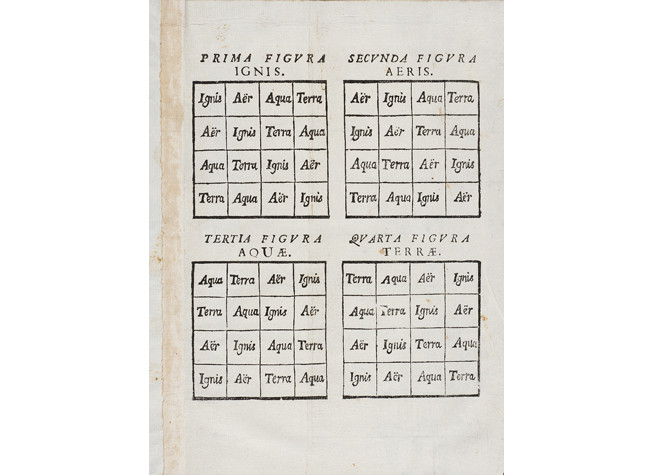 PRIMA FIGVRA
IGNIS.
Ignis Aër Aqua Terra
Aër Ignis Terra Aqua
Aqua Terra Ignis Aër
Terra Aqua Aër Ignis
SECVNDA FIGVRA
AERIS.
Aër Ignis Aqua Terra
Ignis Aër Terra Aqua
Aqua Terra Aër Ignis
Terra Aqua Ignis Aër
TERTIA FIGVRA
AQUÆ.
Aqua Terra Aër Ignis
Terra Aqua Ignis Aër
Aër Ignis Aqua Terra
Ignis Aër Terra Aqua
QVARTA FIGVRA
TERRÆ.
Terra Aqua Aër Ignis
Aqua Terra Ignis Aër
Aër Ignis Terra Aqua
Ignis Aër Aqua Terra